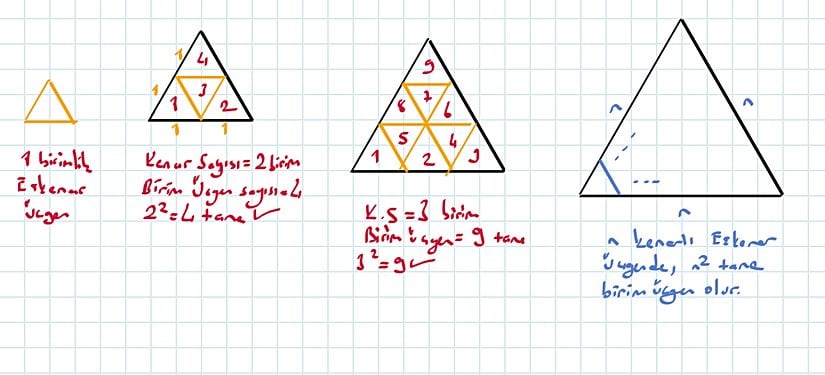 1 birimlik
Eşkenar
üçgen
1
1
1
1
4
3
1
2
Kenar Sayısı = 2 birim
Birim Üçgen sayısı = 4
2² = 4 tane ✓
9
8
7
6
5
4
1
2
3
K.S = 3 birim
Birim üçgen = 9 tane
3² = 9 ✓
n
n
n
n kenarlı Eşkenar
üçgende, n² tane
birim üçgen olur.